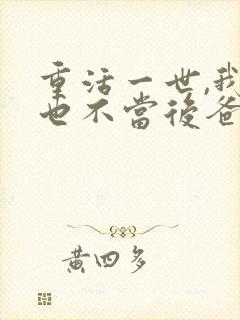 重活一世,我
也不當後爸
黃四多